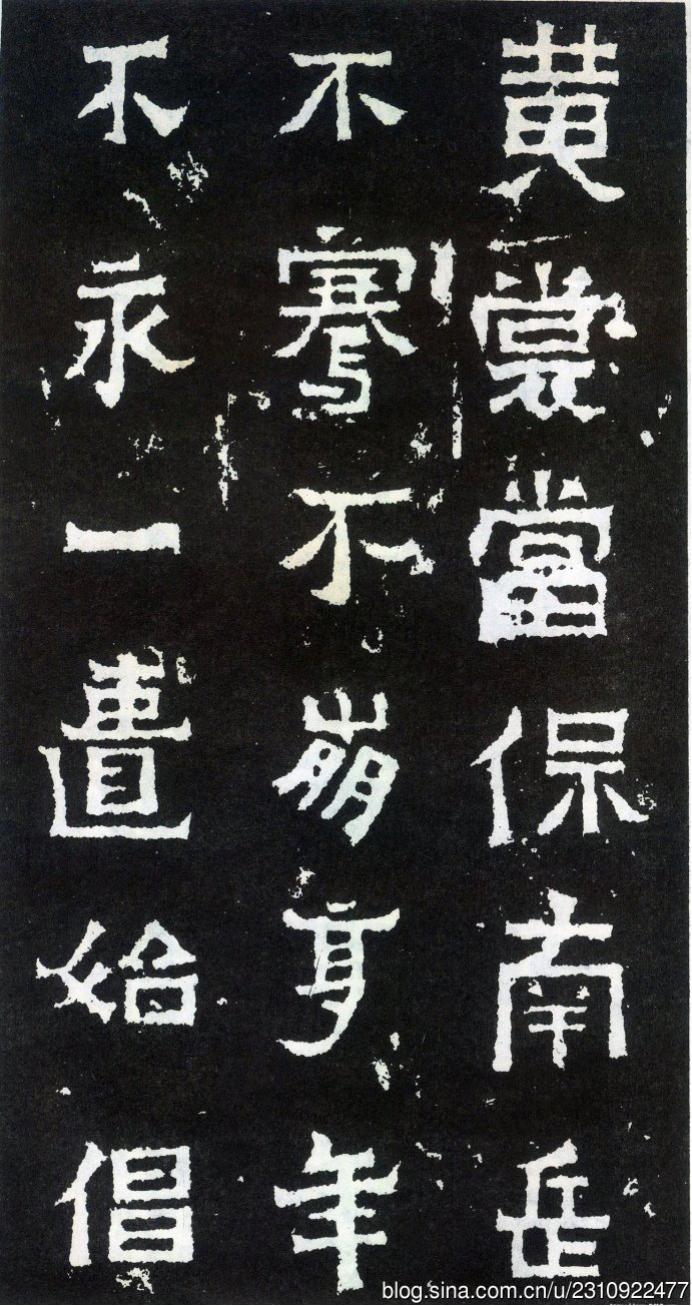 黄裳當保南岳
不騫不崩享年
不永一匱始倡
blog.sina.com.cn/u/2310922477